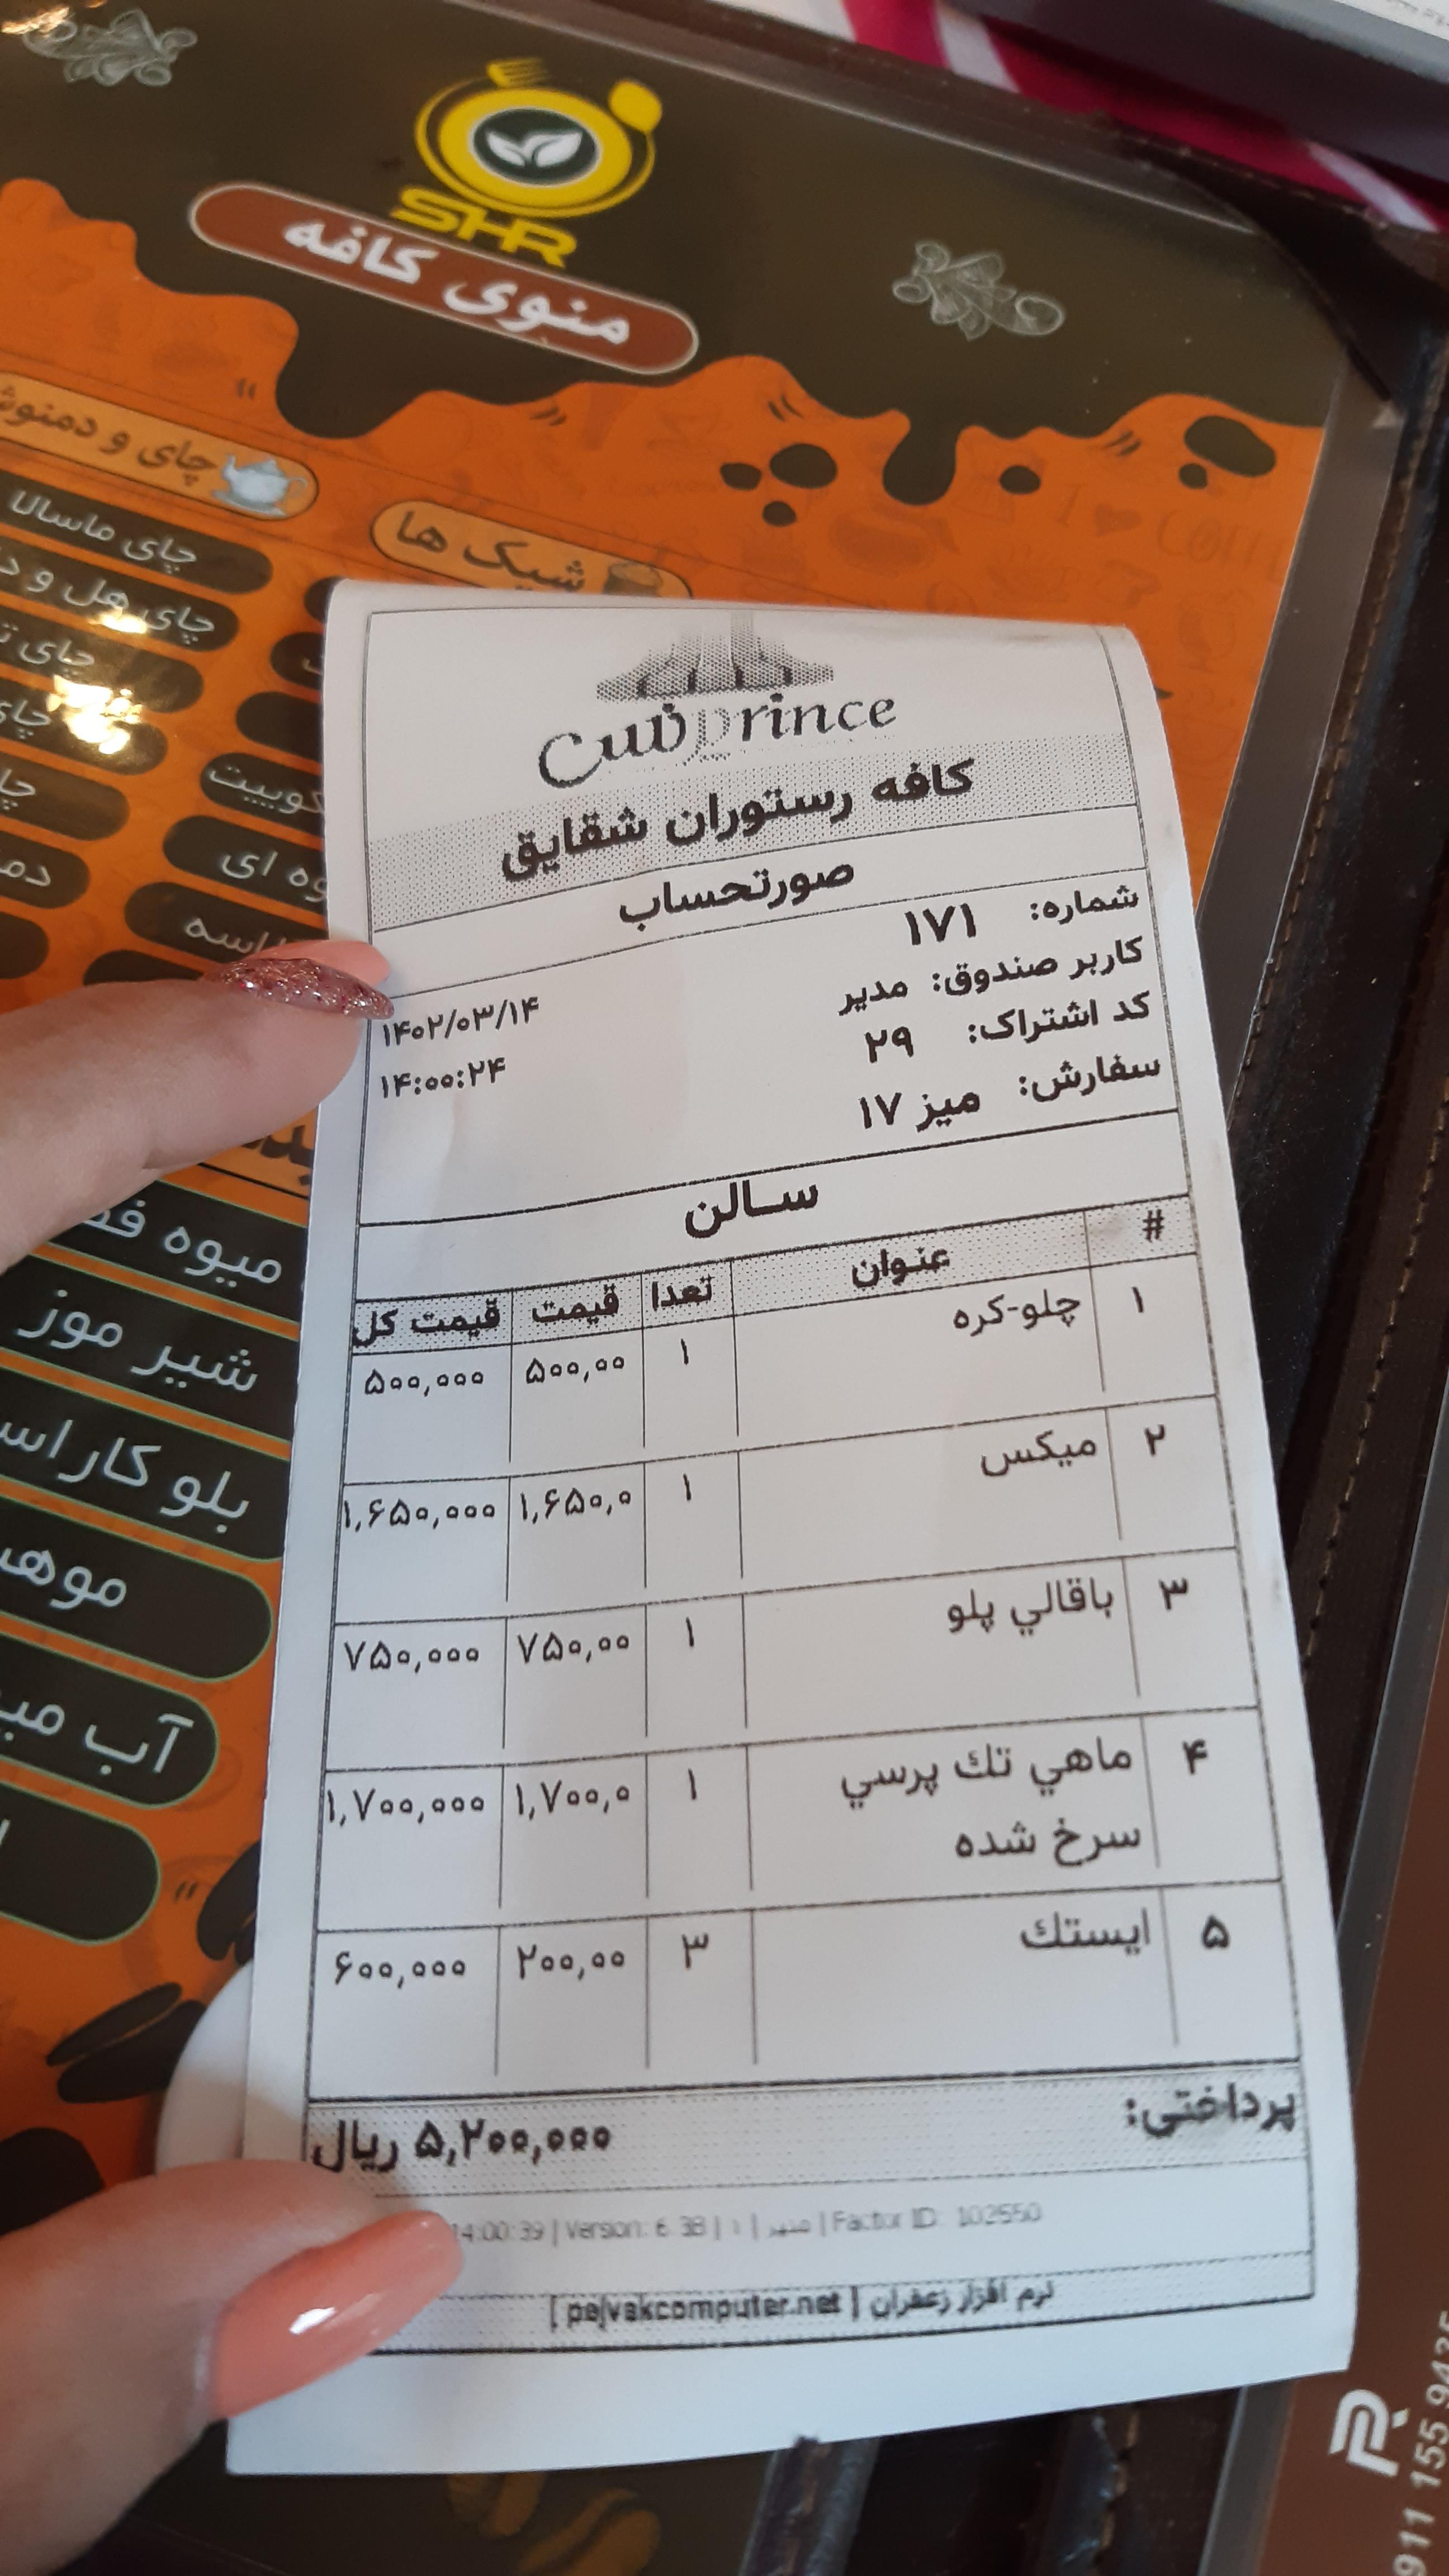 SHR
منوی کافه
چای و دمنوش
چای ماسالا
چای هل و
شیک ها
میوه
شیر موز
بلو
آب
کافه رستوران شقایق
صورتحساب
شماره: ۱۷۱
کاربر صندوق: مدیر
۱۴۰۲/۰۳/۱۴
کد اشتراک: ۲۹
۱۴:۰۰:۲۴
سفارش: میز ۱۷
سالن
# عنوان تعدا قیمت قیمت کل
۱ چلو-کره ۱ ۵۰۰,۰۰ ۵۰۰,۰۰۰
۲ میکس ۱ ۱,۶۵۰,۰ ۱,۶۵۰,۰۰۰
۳ باقالي پلو ۱ ۷۵۰,۰۰ ۷۵۰,۰۰۰
۴ ماهي تك پرسي ۱ ۱,۷۰۰,۰ ۱,۷۰۰,۰۰۰
سرخ شده
۵ ايستك ۳ ۲۰۰,۰۰ ۶۰۰,۰۰۰
پرداختی: ۵,۲۰۰,۰۰۰ ریال
14:00:39 | Version: 6.38 | ۱ | | Factor ID: 102550
نرم افزار زعفران | pajvakcomputer.net |
911 155 9435